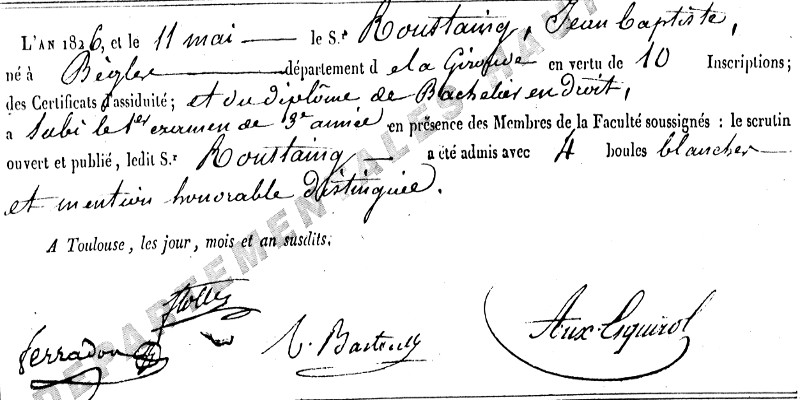 L'AN 1826, et le 11 mai — le S.r Roustaing, Jean Baptiste,
né à Bègles — département de la Gironde en vertu de 10 Inscriptions;
des Certificats d'assiduité; et du diplôme de Bachelier en droit,
a subi le 1er examen de 3e année en présence des Membres de la Faculté soussignés : le scrutin
ouvert et publié, ledit S.r Roustaing — a été admis avec 4 boules blanches —
et mention honorable distinguée.
A Toulouse, les jour, mois et an susdits.
Ferradou
Aux. Esquirol
DEPARTEMENTALES HAUT